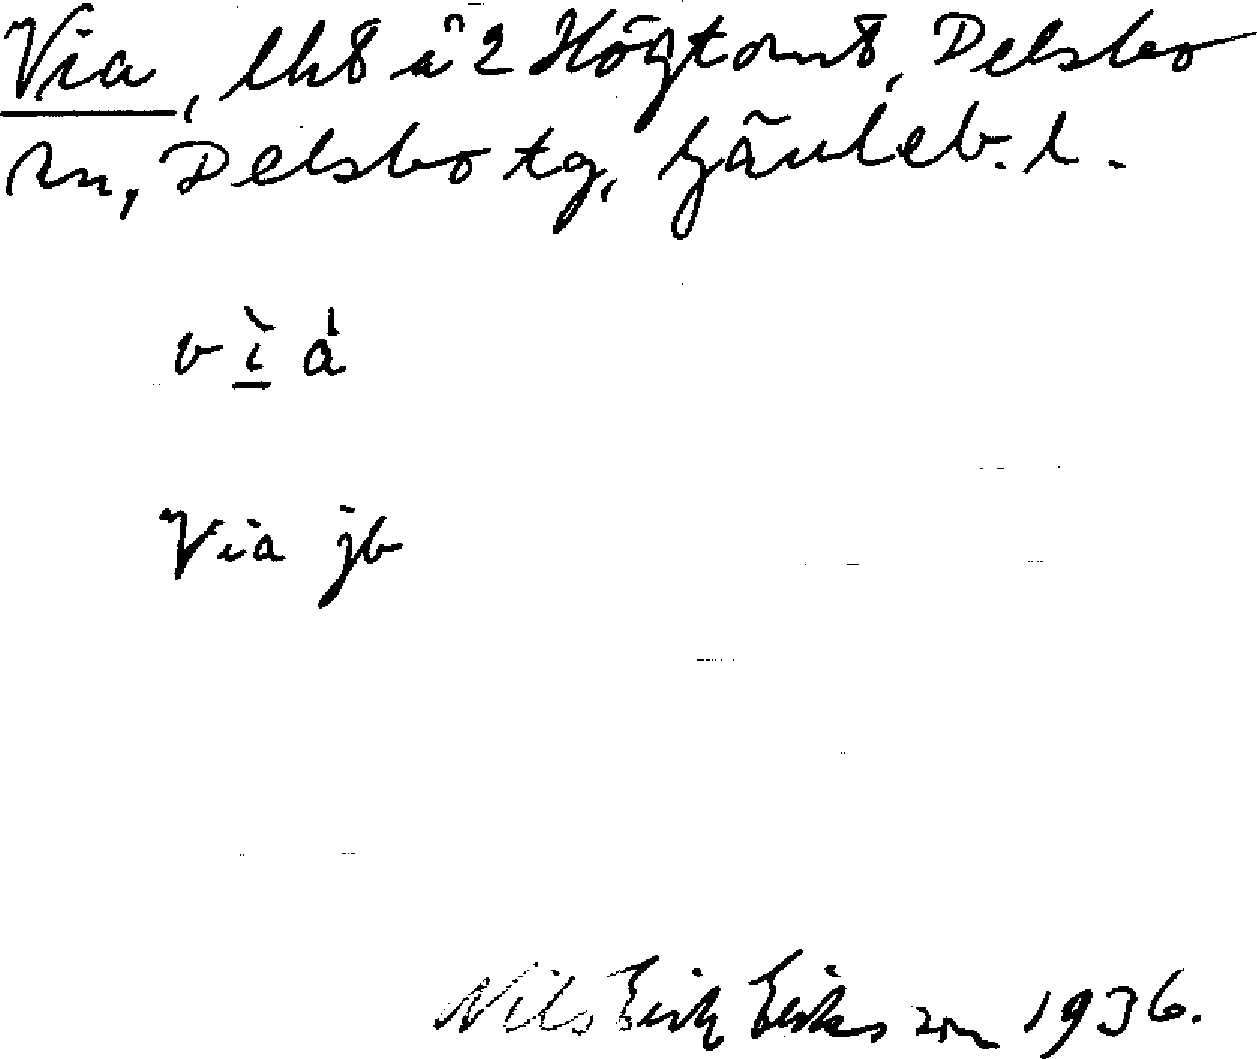 Via, lht å 2 Högtomt, Delsbo
sn, Delsbo tg, Gävleb. l.
vìa
Via jb
Nils Erik Eriksson 1936.